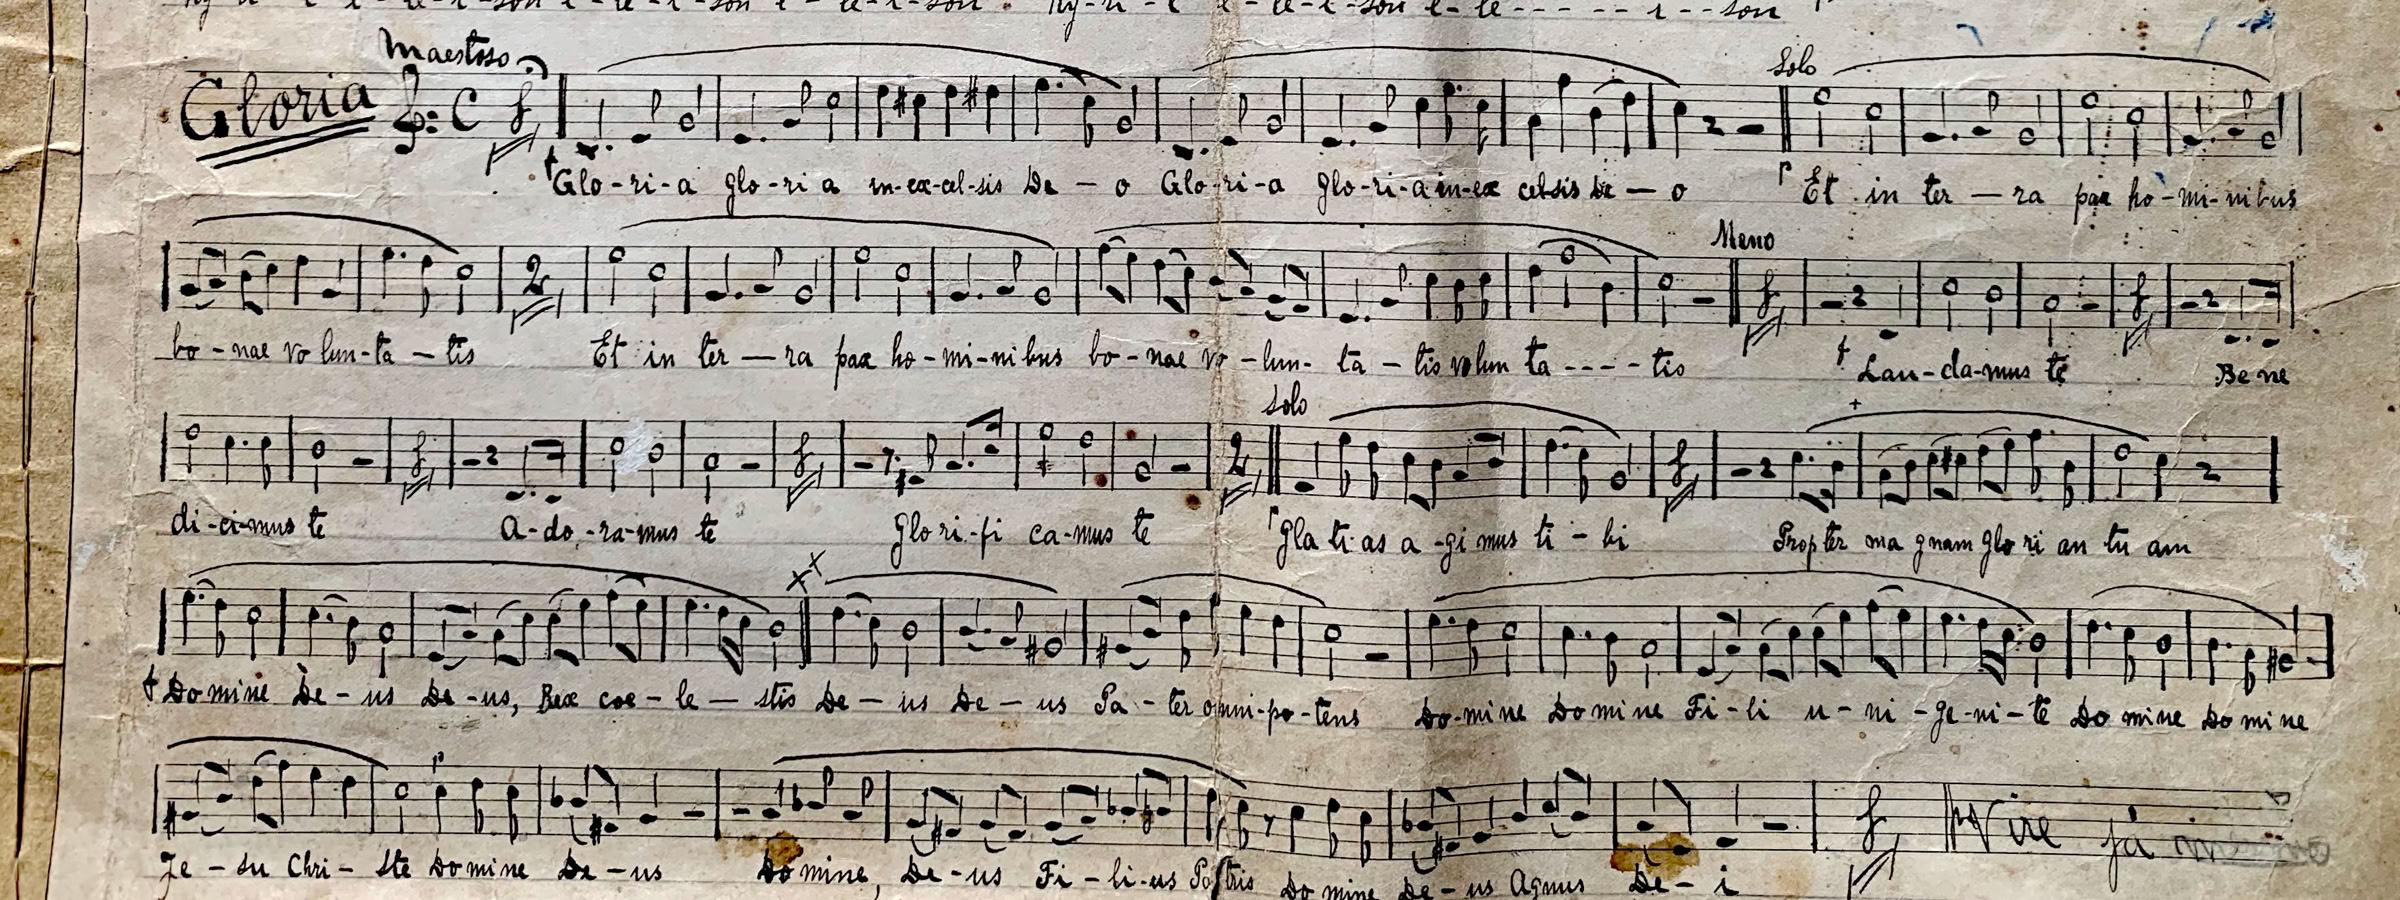 Ky-ri-e e-le-i-son e-le-i-son e-le-i-son. Ky-ri-e e-le-i-son e-le-----i--son
Maestoso
Solo
Gloria
Glo-ri-a glo-ri a in-ex-cel-sis De-o Glo-ri-a glo-ri-a in-ex celsis De-o Et in ter-ra pax ho-mi-nibus
Meno
bo-nae vo lun-ta-tis Et in ter-ra pax ho-mi-nibus bo-nae vo-lun-ta-tis volun ta----tis Lau-da-mus te Be ne
Solo
di-ci-mus te A-do-ra-mus te Glo ri-fi ca-mus te Gla ti as a-gi mus ti-bi Propter ma gnam glo ri an tu am
Do mine De-us De-us, Rex coe-le-stis De-us De-us Pa-ter omni-po-tens Do-mine Do mine Fi-li u-ni-ge-ni-te Do mine Do mine
Je-su Chri-ste Do mine De-us Do mine, De-us Fi-li-us Patris Do mine De-us Agnus De-i
Vire já